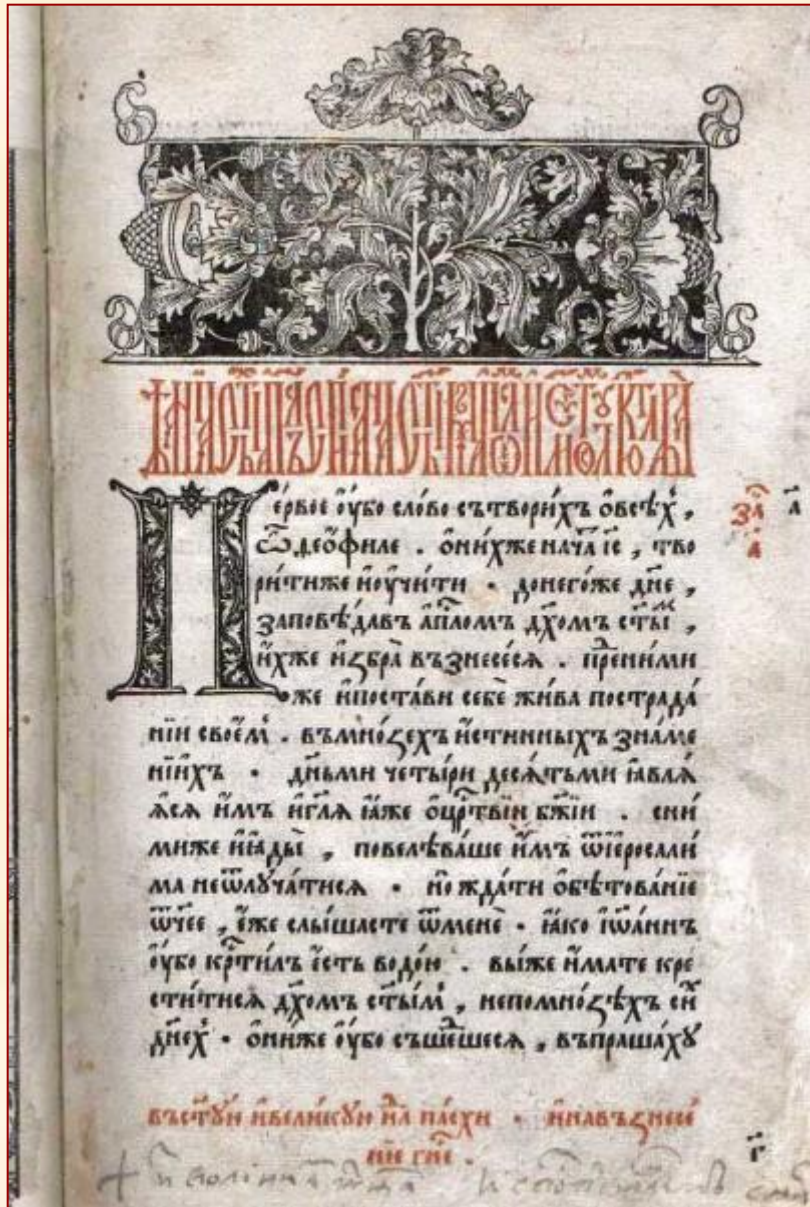 Первое ᲂу҆́бо сло́во сътвори́хъ ѡ҆всѣ́хъ ,
ѽ де́ѻ҆филе . ѻ҆ни́хже нача́ і҆с҃ , тво
ри́тиже и҆ᲂу҆чи́ти . донего́же дн҃е ,
заповѣ́давъ а҆пⷭ҇ломъ дх҃омъ ст҃ы́ ,
и҆́хже и҆збра̀ възнесе́ся . пред̾ни́ми
же и҆поста́ви себѐ жи́ва пострада́
нїи свое́мъ . въмно́ѕехъ и҆́стинныхъ зна́ме
нїихъ . дн҃ьми четы́ри деся́тьми ꙗ҆влѧ́
ѧ҆ся и҆̀мъ и҆гл҃ѧ ꙗ҆́же ѻ҆црⷭ҇твїи бж҃їи . сни́
миже и҆ꙗ҆ды̀ , повелѣва́ше и҆̀мъ ѿі҆еросали́
ма неѿлуча́тися . но жда́ти ѻ҆бѣтова́нїе
ѿч҃ее , е҆́же слы́шасте ѿменѐ . ꙗ҆́ко і҆ѡа́ннъ
ᲂу҆́бо крⷭ҇ти́лъ е҆́сть водо́ю . вы́же и҆́мате кре
сти́тися дх҃омъ ст҃ы́мъ , непомно́ѕѣхъ си́хъ
дн҃ехъ . ѻ҆ни́же ᲂу҆́бо съше́дшеся , въпраша́ху
въст҃у́ю и҆вели́кую нⷣлю па́схи . и҆навъзнесе́
нїе гн҃е .
зⷱ҇а
а҃
а҃
г҃